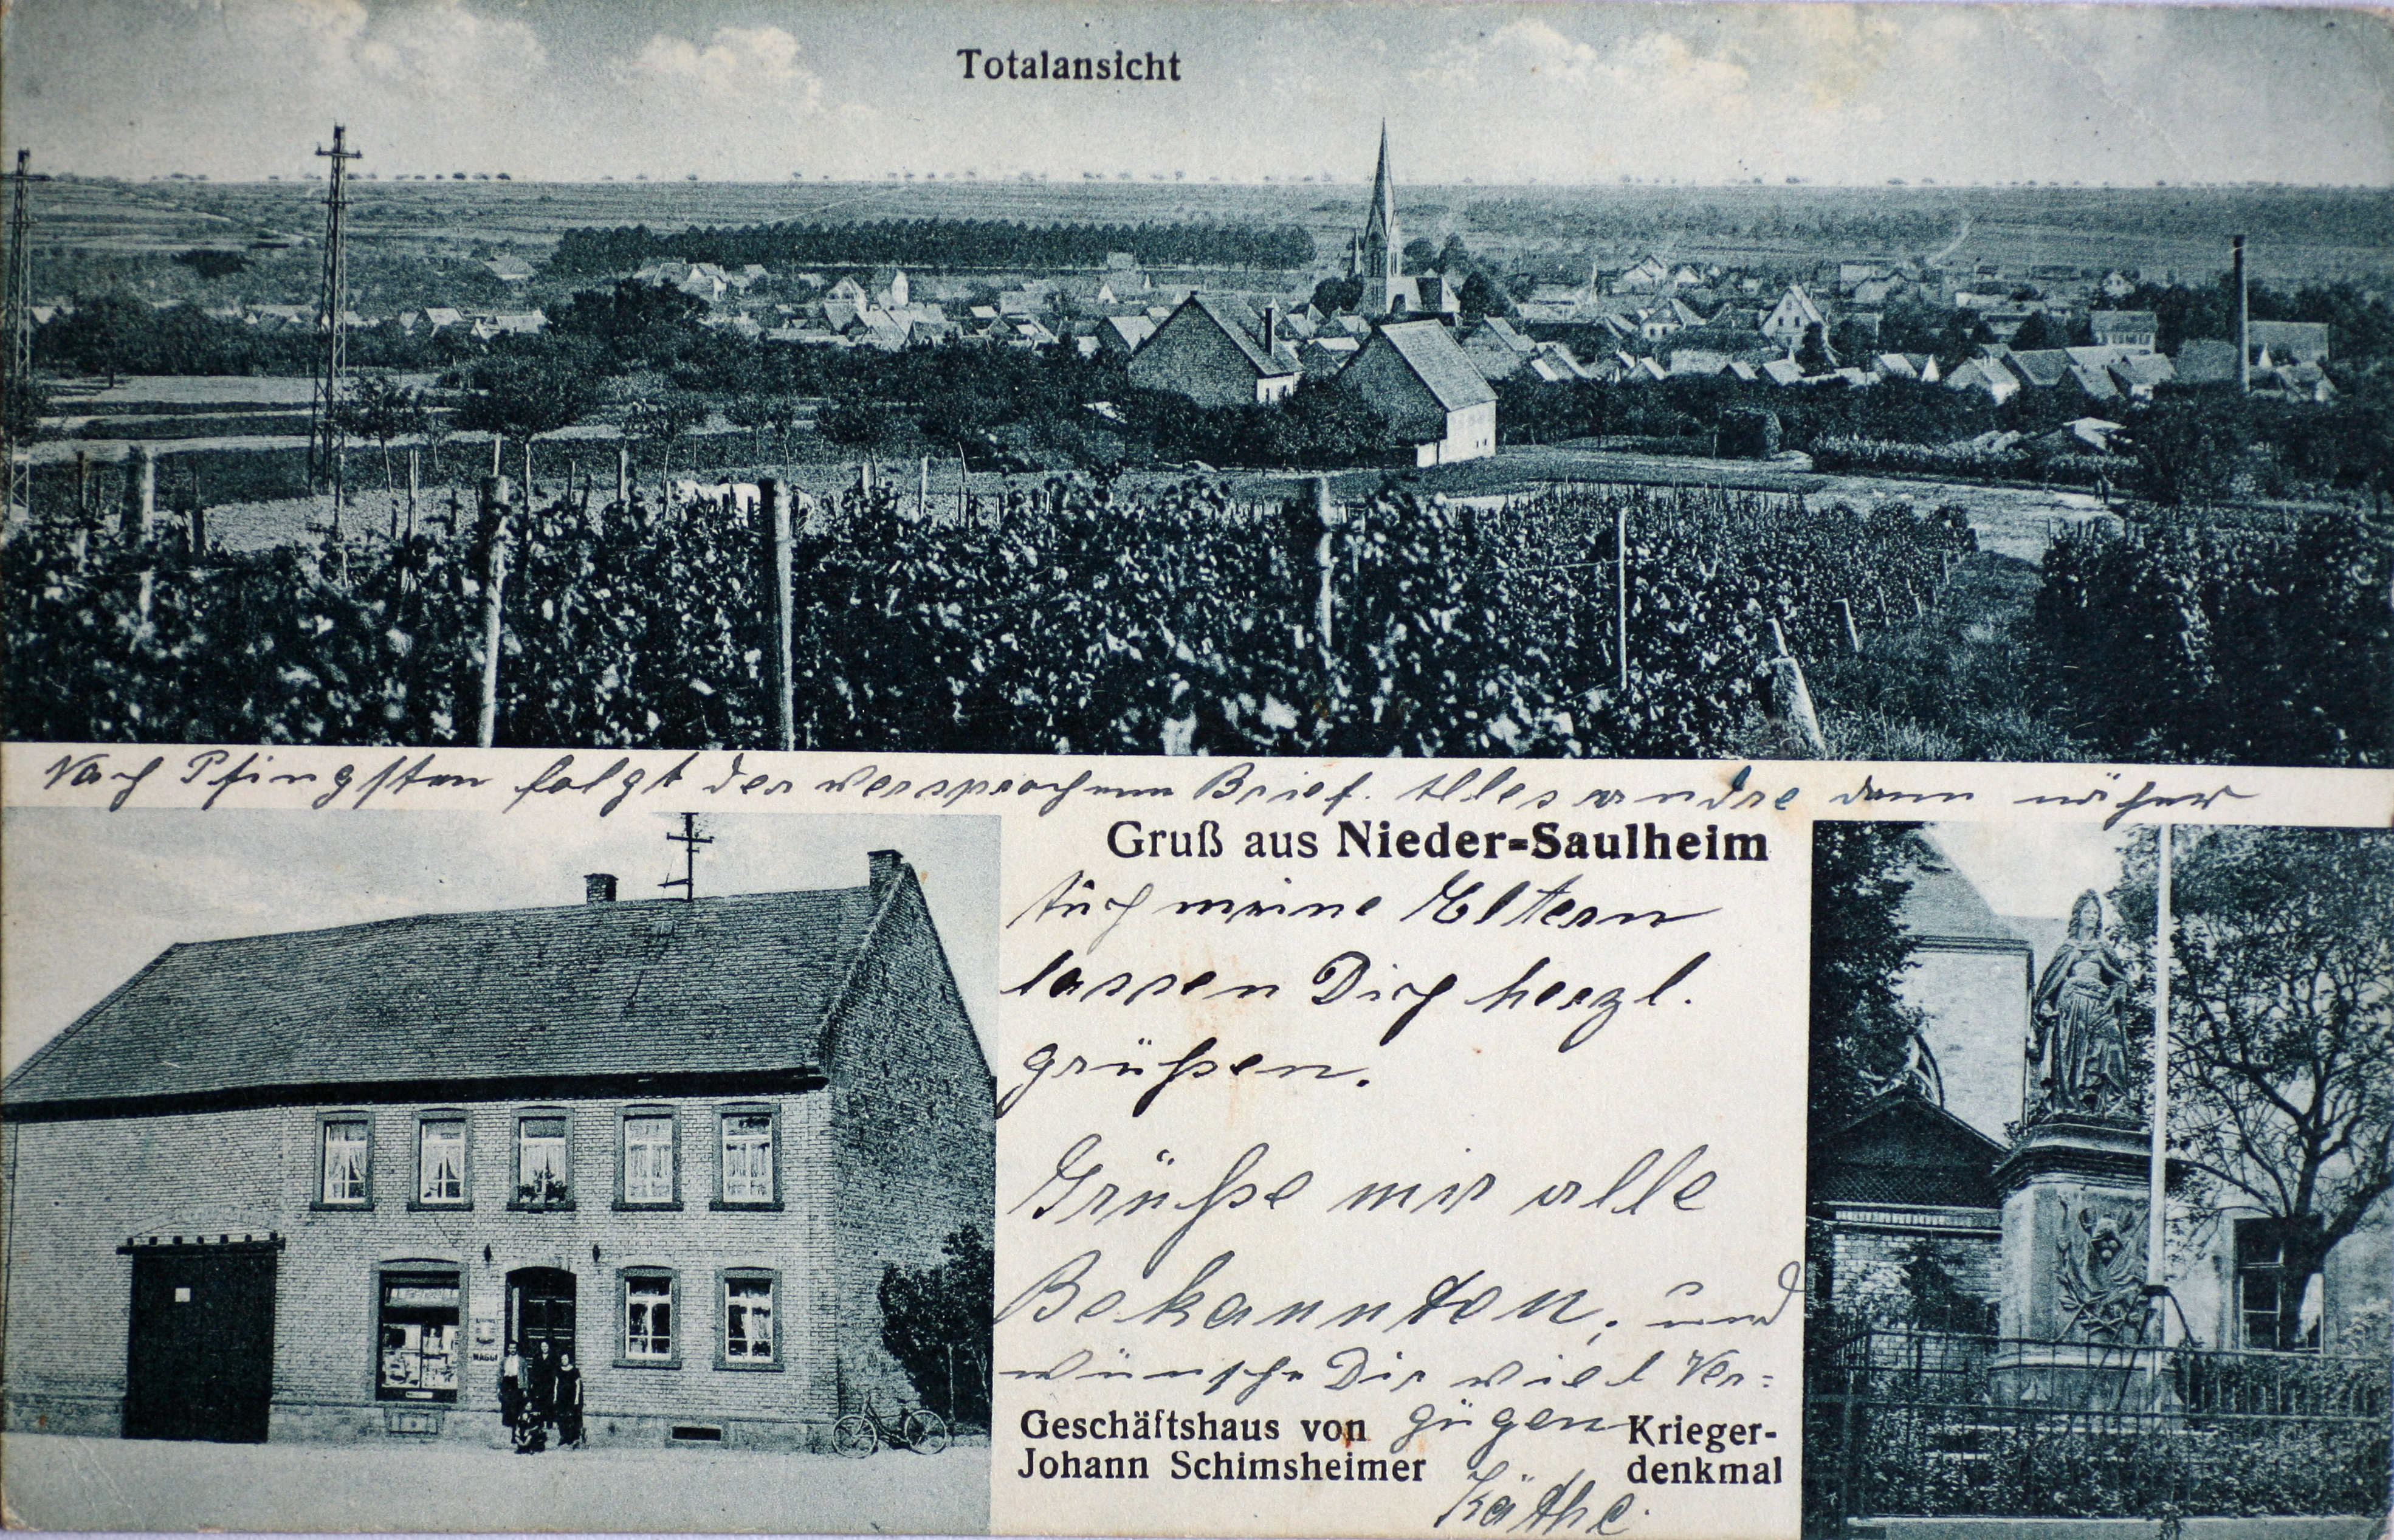 Totalansicht
Nach Pfingsten folgt der versprochene Brief. Alles andre dann näher
Gruß aus Nieder=Saulheim
Auch meine Eltern
lassen Dich herzl.
grüßen.
Grüße mir alle
Bekannten, und
wünsche Dir viel Ver=
gügen
Geschäftshaus von
Johann Schimsheimer
Krieger-
denkmal
Käthe.
MAGGI